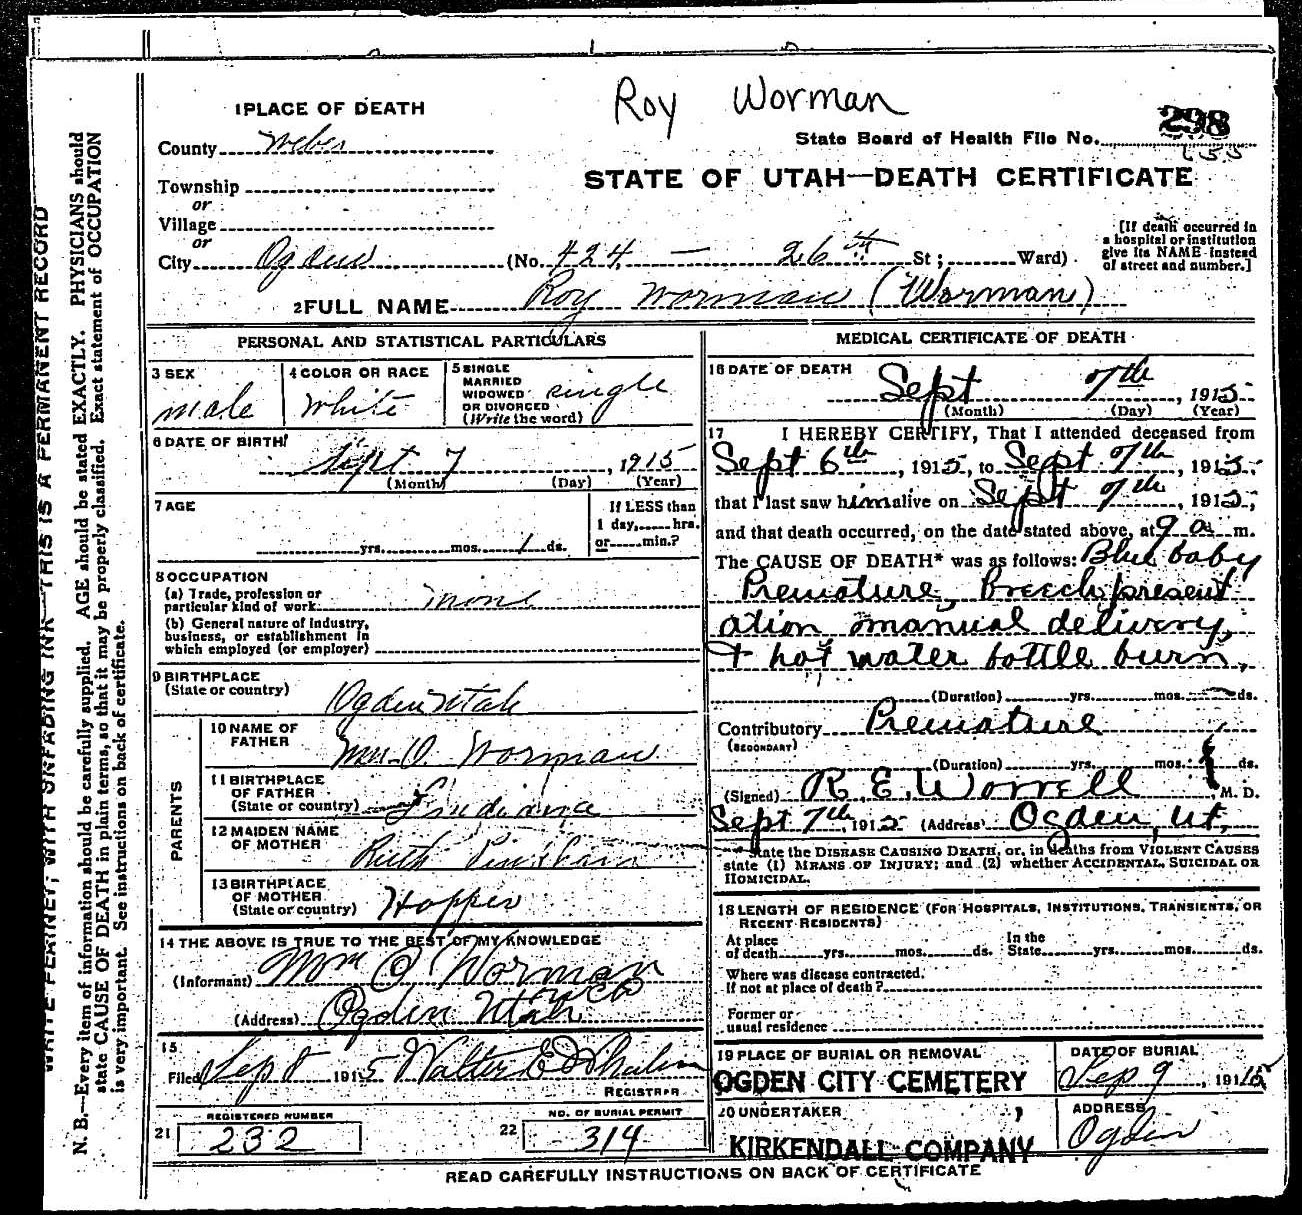 Roy Worman
1 PLACE OF DEATH
State Board of Health File No. 298
County Weber
155
STATE OF UTAH—DEATH CERTIFICATE
Township
or
Village
or
City Ogden (No. 424 — 26th St; Ward)
[If death occurred in
a hospital or institution
give its NAME instead
of street and number.]
2 FULL NAME Roy Worman (Worman)
PERSONAL AND STATISTICAL PARTICULARS
3 SEX
male
4 COLOR OR RACE
White
5 SINGLE
MARRIED
WIDOWED
OR DIVORCED
(Write the word)
single
6 DATE OF BIRTH
Sept 7, 1915
(Month) (Day) (Year)
7 AGE
yrs. mos. 1 ds.
If LESS than
1 day, hrs.
or min.?
8 OCCUPATION
(a) Trade, profession or
particular kind of work none
(b) General nature of industry,
business, or establishment in
which employed (or employer)
9 BIRTHPLACE
(State or country)
Ogden Utah
PARENTS
10 NAME OF
FATHER
Wm. O. Worman
11 BIRTHPLACE
OF FATHER
(State or country) Indiana
12 MAIDEN NAME
OF MOTHER
Ruth
13 BIRTHPLACE
OF MOTHER
(State or country)
Hopper
14 THE ABOVE IS TRUE TO THE BEST OF MY KNOWLEDGE
(Informant) Wm O Worman
(Address) Ogden Utah
15
Filed Sep 8 1915 Walter E Whalen
REGISTRAR
REGISTERED NUMBER
21 232
NO. OF BURIAL PERMIT
22 314
MEDICAL CERTIFICATE OF DEATH
16 DATE OF DEATH
Sept 7th, 1915
(Month) (Day) (Year)
17 I HEREBY CERTIFY, That I attended deceased from
Sept 6th, 1915, to Sept 7th, 1915,
that I last saw him alive on Sept 7th, 1915,
and that death occurred, on the date stated above, at 9 a. m.
The CAUSE OF DEATH* was as follows: Blue baby
Premature, Breech present
ation manual delivery,
& hot water bottle burn,
(Duration) yrs. mos. ds.
Contributory Premature
(SECONDARY)
(Duration) yrs. mos. ds.
(Signed) R. E. Worrell M. D.
Sept 7th, 1915 (Address) Ogden, Ut,
State the DISEASE CAUSING DEATH, or, in deaths from VIOLENT CAUSES
state (1) MEANS OF INJURY; and (2) whether ACCIDENTAL, SUICIDAL OR
HOMICIDAL.
18 LENGTH OF RESIDENCE (FOR HOSPITALS, INSTITUTIONS, TRANSIENTS, OR
RECENT RESIDENTS)
At place
of death yrs. mos. ds.
In the
State yrs. mos. ds.
Where was disease contracted.
If not at place of death?
Former or
usual residence
19 PLACE OF BURIAL OR REMOVAL
OGDEN CITY CEMETERY
DATE OF BURIAL
Sep 9, 1915
20 UNDERTAKER
KIRKENDALL COMPANY
ADDRESS
Ogden
READ CAREFULLY INSTRUCTIONS ON BACK OF CERTIFICATE
WRITE PLAINLY, WITH UNFADING INK—THIS IS A PERMANENT RECORD
N. B.—Every item of information should be carefully supplied. AGE should be stated EXACTLY. PHYSICIANS should
state CAUSE OF DEATH in plain terms, so that it may be properly classified. Exact statement of OCCUPATION
is very important. See instructions on back of certificate.